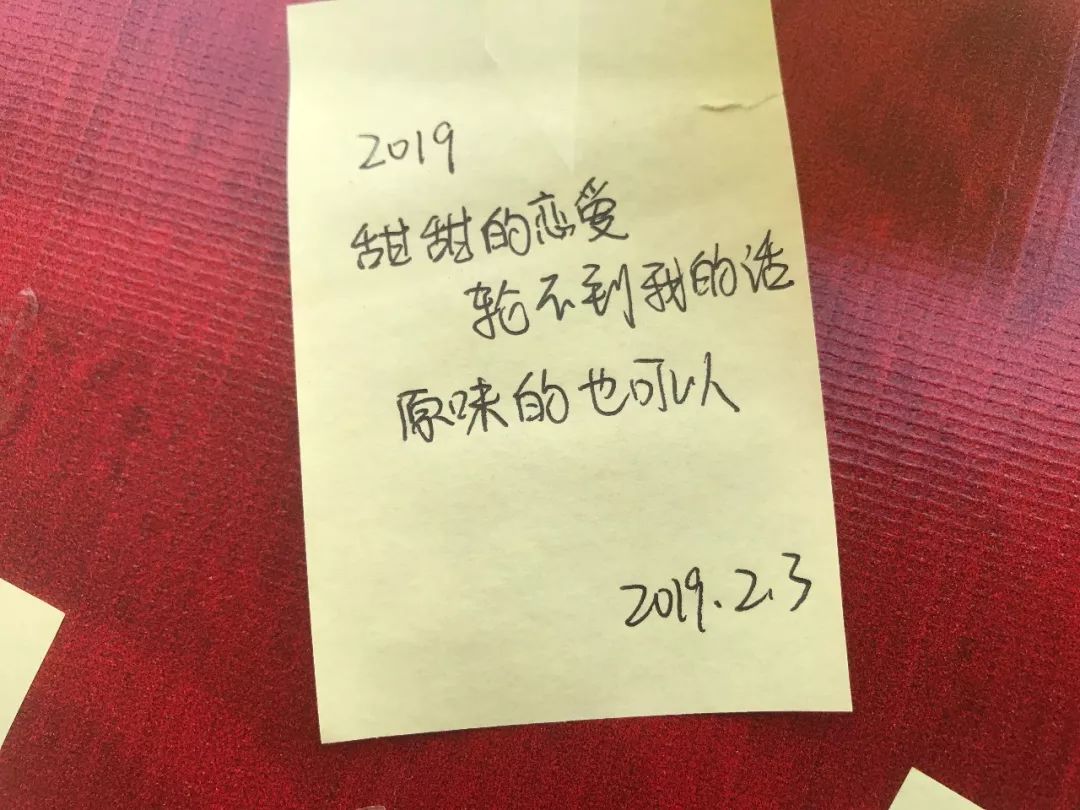 2019
甜甜的恋爱
轮不到我的话
原味的也可以
2019.2.3